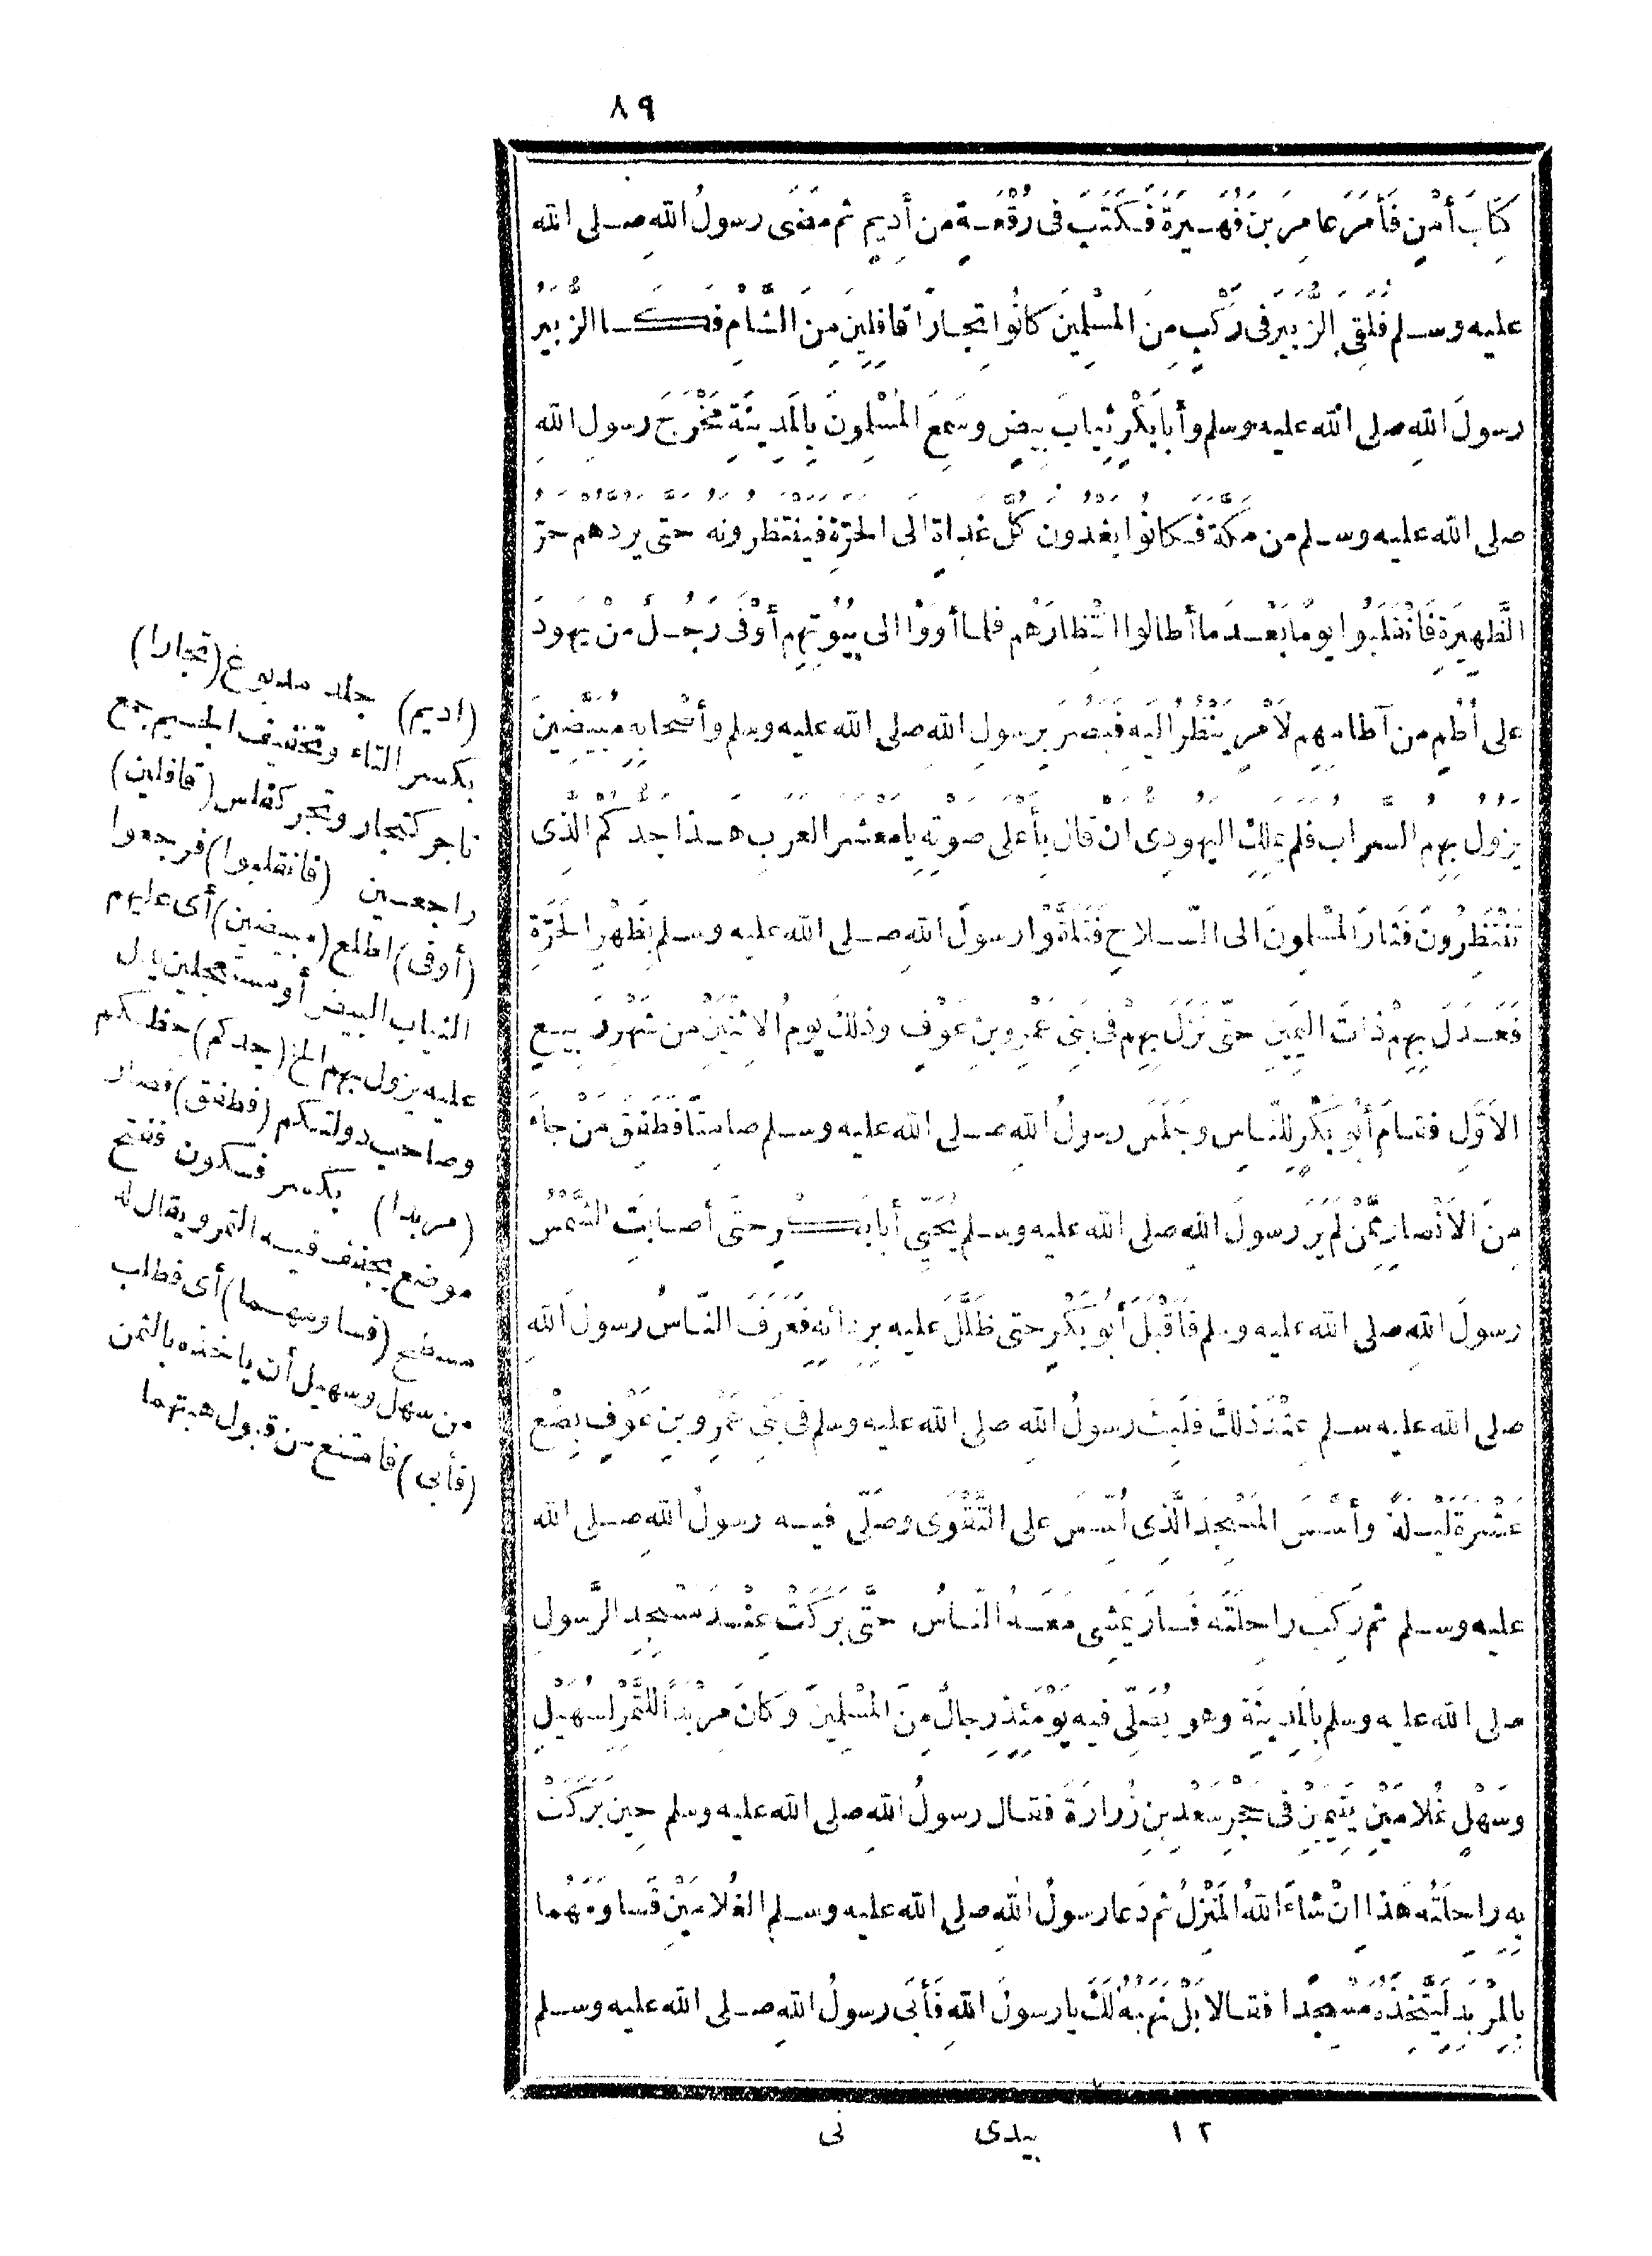 ٨٩
كِتَابَ أَمْنٍ فَأَمَرَ عَامِرَ بْنَ فُهَيْرَةَ فَكَتَبَ فى رُقْعَةٍ من أَدِيمٍ ثم مَضَى رسولُ اللهِ صلى الله
عليه وسلم فَلَقِىَ الزُّبَيْرَ فى رَكْبٍ مِنَ المُسْلِمِينَ كانُوا تِجَارًا قافِلِينَ مِنَ الشَّامِ فَكَسا الزُّبَيْرُ
رسولَ اللهِ صلى الله عليه وسلم وأبا بَكْرٍ ثِيابَ بِيضٍ وسَمِعَ المُسْلِمونَ بِالمَدِينَةِ مَخْرَجَ رسولِ اللهِ
صلى الله عليه وسلم من مَكَّةَ فَكانُوا يَغْدُونَ كُلَّ غَداةٍ الى الحَرَّةِ فَيَنْتَظِرُونَهُ حتى يَرُدَّهُمْ حَرُّ
الظَّهِيرَةِ فَانْقَلَبُوا يومًا بَعْدَ ما أطالوا انْتِظارَهُم فلما أَوَوْا الى بُيُوتِهِم أَوْفَى رَجُلٌ مِنْ يَهودَ
على أُطُمٍ من آطامِهِم لِأَمْرٍ يَنْظُرُ اليه فَبَصُرَ بِرسولِ اللهِ صلى الله عليه وسلم وأصْحابِهِ مُبَيَّضِينَ
يَزُولُ بِهِمُ السَّرابُ فلم يَمْلِكِ اليهودِى ان قال بأعلى صَوْتِهِ يا مَعْشَرَ العَرَبِ هـذا جَدُّكُمُ الَّذِى
تَنْتَظِرُونَ فَثارَ المُسْلِمونَ الى السِّلاحِ فَتَلَقَّوْا رسولَ اللهِ صلى الله عليه وسلم بِظَهْرِ الحَرَّةِ
فَعَدَلَ بِهِمْ ذاتَ اليَمِينِ حتَّى نَزَلَ بِهِمْ فى بَنِى عَمْرِو بنِ عَوْفٍ وذلك يومُ الاثْنَيْنِ من شَهْرِ رَبِيعٍ
الاَوَّلِ فقامَ أبُو بَكْرٍ لِلنّاسِ وجَلَسَ رسولُ اللهِ صلى الله عليه وسلم صامِتًا فَطَفِقَ مَنْ جاءَ
مِنَ الاَنْصارِ مِمَّنْ لَمْ يَرَ رسولَ اللهِ صلى الله عليه وسلم يُحَيِّى أبا بَكْرٍ حتَّى أصابَتِ الشَّمْسُ
رسولَ اللهِ صلى الله عليه وسلم فَأَقْبَلَ أبُو بَكْرٍ حتى ظَلَّلَ عليه بِرِدائِهِ فَعَرَفَ النّاسُ رسولَ اللهِ
صلى الله عليه سلم عِنْدَ ذلك فَلَبِثَ رسولُ اللهِ صلى الله عليه وسلم فى بَنِى عَمْرِو بنِ عَوْفٍ بِضْعَ
عَشْرَةَ لَيْلَةً وأُسِّسَ المَسْجِدُ الَّذِى أُسِّسَ على التَّقْوَى وصَلَّى فيه رسولُ اللهِ صلى الله
عليه وسلم ثم رَكِبَ راحِلَتَه فَسارَ يَمْشِى مَعَهُ النّاسُ حتَّى بَرَكَتْ عِنْدَ مَسْجِدِ الرَّسولِ
صلى الله عليه وسلم بِالمَدِينَةِ وهو يُصَلِّى فيه يَوْمَئِذٍ رِجالٌ مِنَ المُسْلِمِينَ وكانَ مِرْبَدًا لِلتَّمْرِ لِسُهَيْلٍ
وسَهْلٍ غُلامَيْنِ يَتِيمَيْنِ فى حِجْرِ سَعْدِ بنِ زُرارَةَ فقال رسولُ اللهِ صلى الله عليه وسلم حِينَ بَرَكَتْ
بِهِ راحِلَتُه هَذا انْ شاءَ اللهُ المَنْزِلُ ثم دَعا رسولُ اللهِ صلى الله عليه وسلم الغُلامَيْنِ فَساوَمَهُما
بِالمِرْبَدِ لِيَتَّخِذَهُ مَسْجِدًا فقالا بَلْ نَهَبُهُ لَكَ يا رسولَ اللهِ فَأَبَى رسولُ اللهِ صلى الله عليه وسلم
(اديم) جلد مدبوغ (تجارا)
بكسر التاء وتخفيف الجيم جمع
تاجر كتجار وتجر كفلس (قافلين)
راجعين (فانقلبوا) فرجعوا
(أوفى) اطلع (مبيضين) أى عليهم
الثياب البيض أو مستعجلين يدل
عليه يزول بهم الخ (جدكم) حظكم
وصاحب دولتكم (فطفق) فصار
(مربدا) بكسر فسكون ففتح
موضع يجفف فيه التمر ويقال له
مسطح (فساومهما) أى فطلب
من سهل وسهيل أن ياخذه بالثمن
(فأبى) فامتنع من قبول هبتهما
١٢ بيدى نى